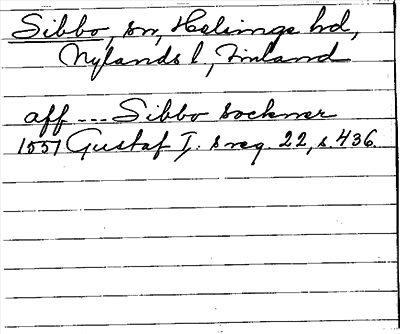 Sibbo, sn, Helsinge hd,
Nylands l, Finland
aff --- Sibbo sockner
1557 Gustaf I. s reg. 22, s. 436.